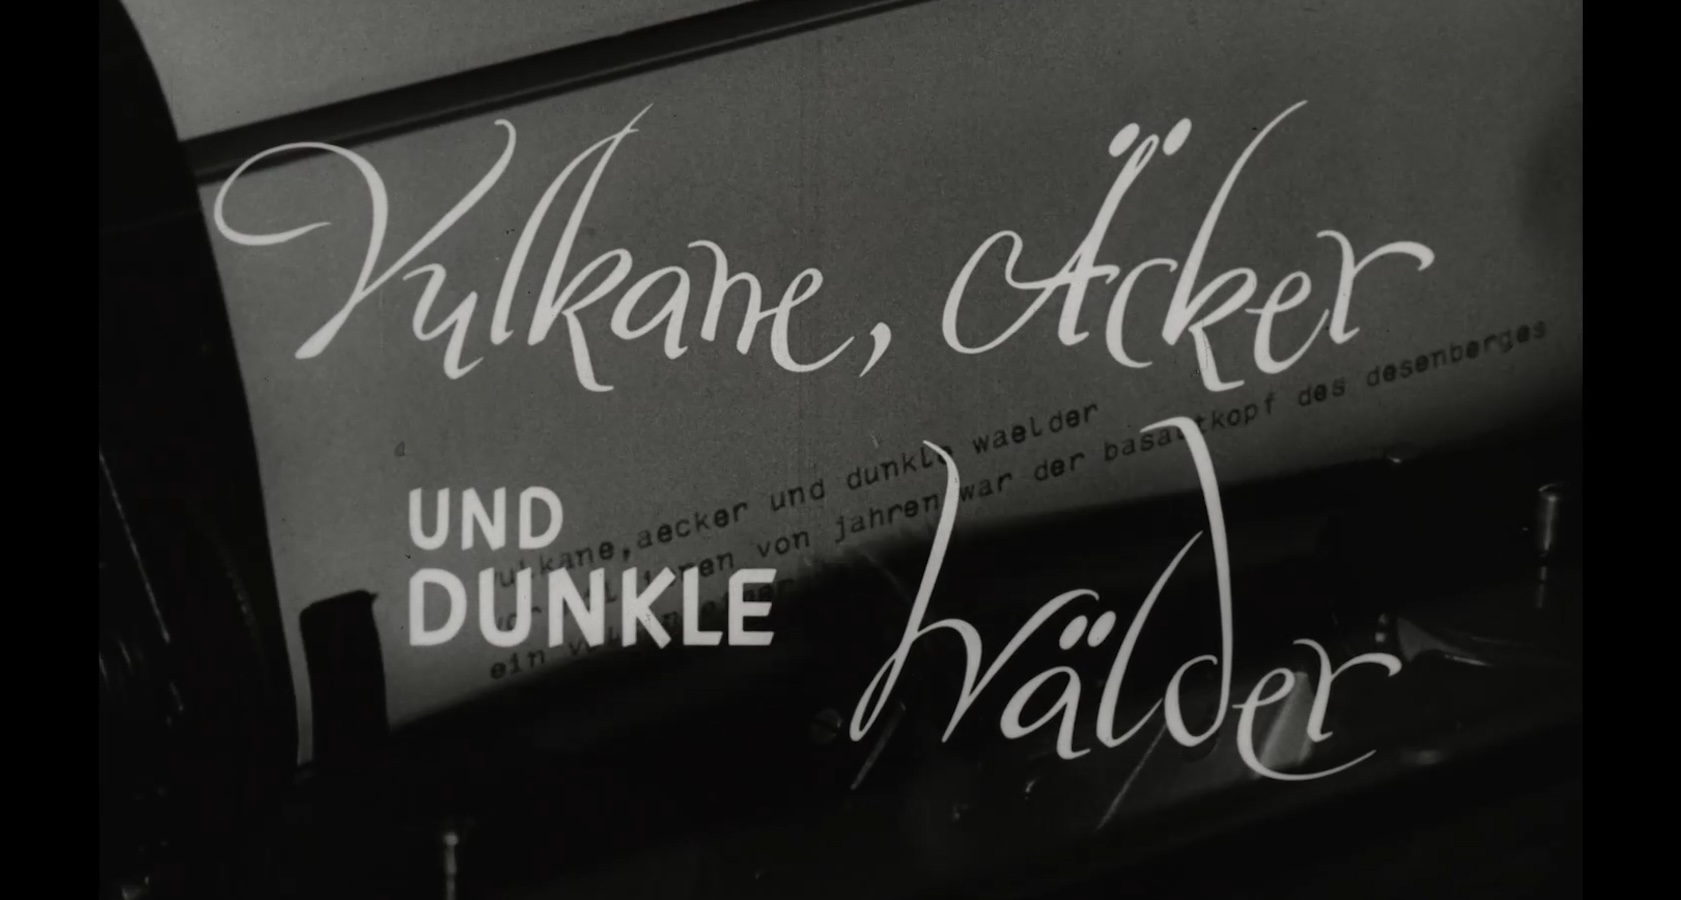 Vulkane, Äcker
UND
DUNKLE
Wälder
aecker und dunkle waelder
von jahren war der basaltkopf des desenberges
ein